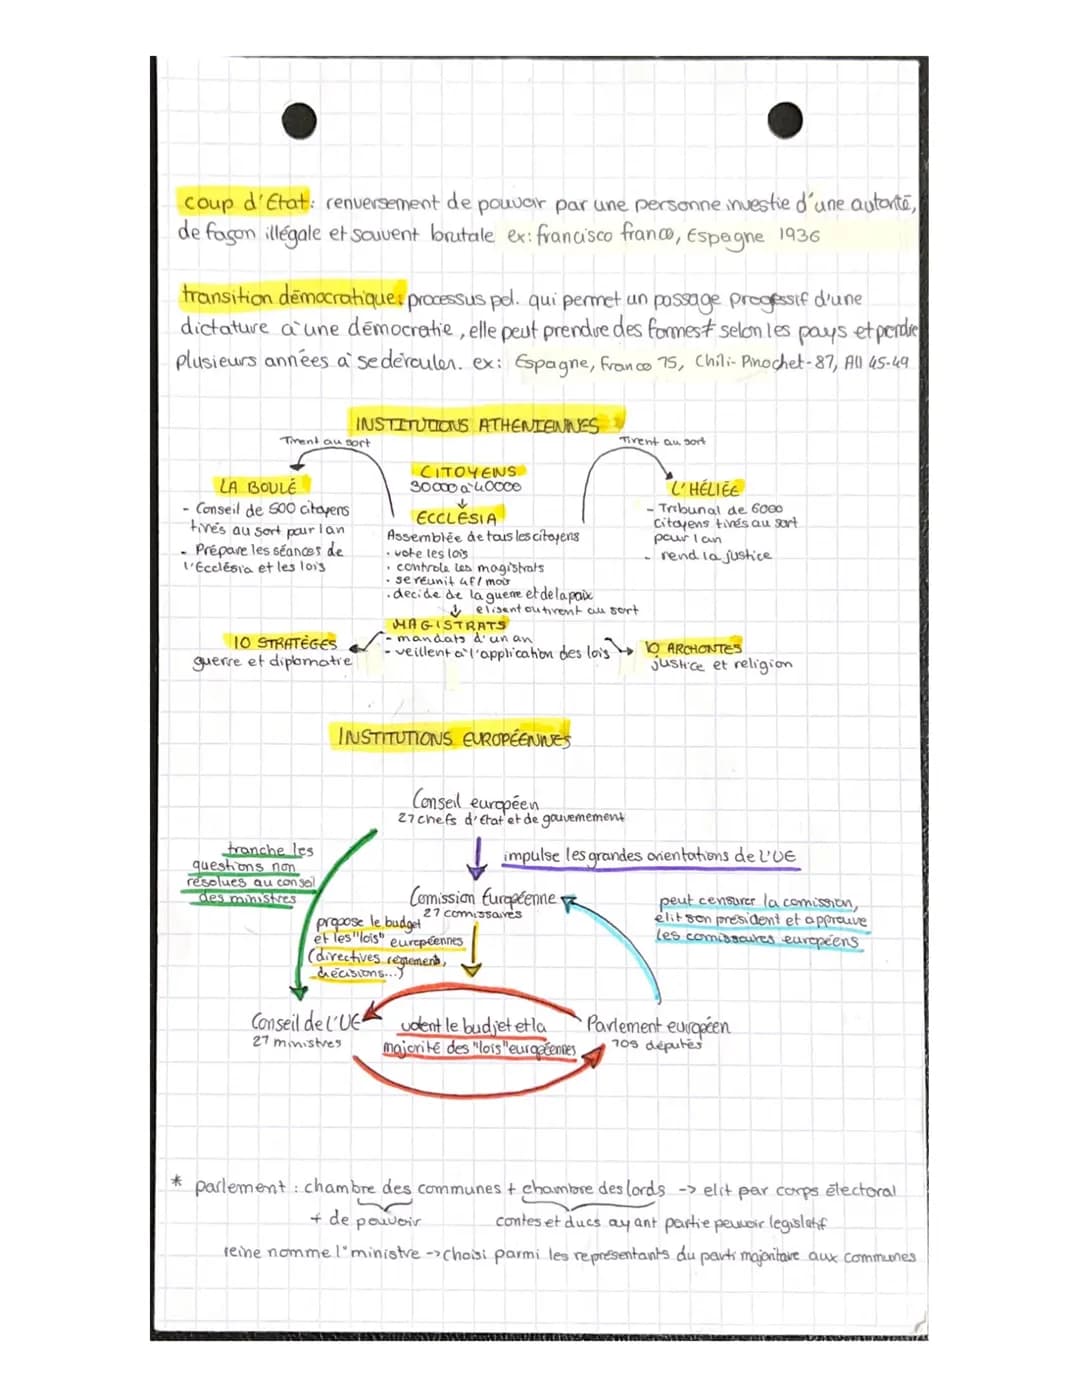 coup d'Etat: renversement de pouvoir par une personne investie d'une autorité,
de façon illégale et souvent brutale ex: francisco franco, Espagne 1936
transition démocratique: processus pol. qui permet un passage progessif d'une
dictature à une démocratie, elle peut prendre des formes ≠ selon les pays et perdre
plusieurs années à se dérouler. ex: Espagne, Franco 75, Chili-Pinochet-87, All 45-49
INSTITUTIONS ATHENIENNES
Tirent au sort
Tirent au sort
CITOYENS
30000 à 40000
LA BOULÉ
- Conseil de 500 citoyens
tirés au sort pour 1 an
- Prépare les séances de
l'Ecclésia et les lois
ECCLÉSIA
Assemblée de tous les citoyens
· vote les lois
· controle les magistrats
· se reunit 4f/mois
· decide de la guerre et de la paix
L'HÉLIÉE
- Tribunal de 6000
citoyens tirés au sort
pour 1 an
- rend la justice
↓ elisent ou tirent au sort
MAGISTRATS
- mandats d'un an
- veillent à l'application des lois
10 STRATÈGES
guerre et diplomatie
10 ARCHONTES
justice et religion
INSTITUTIONS EUROPÉENNES
Conseil européen
27 chefs d'Etat et de gouvernement
tranche les
questions non
résolues au conseil
des ministres
impulse les grandes orientations de l'UE
Comission Européenne
27 comissaires
propose le budget
et les "lois" européennes
(directives, règlements,
décisions...)
peut censurer la comission,
élit son président et approuve
les comissaires européens
Conseil de l'UE
27 ministres
votent le budjet et la
majorité des "lois" européennes
Parlement européen
709 députés
* parlement : chambre des communes + chambre des lords -> elit par corps électoral
+ de pouvoir
contes et ducs ayant partie pouvoir legislatif
reine nomme 1° ministre -> choisi parmi les représentants du parti majoritaire aux communes